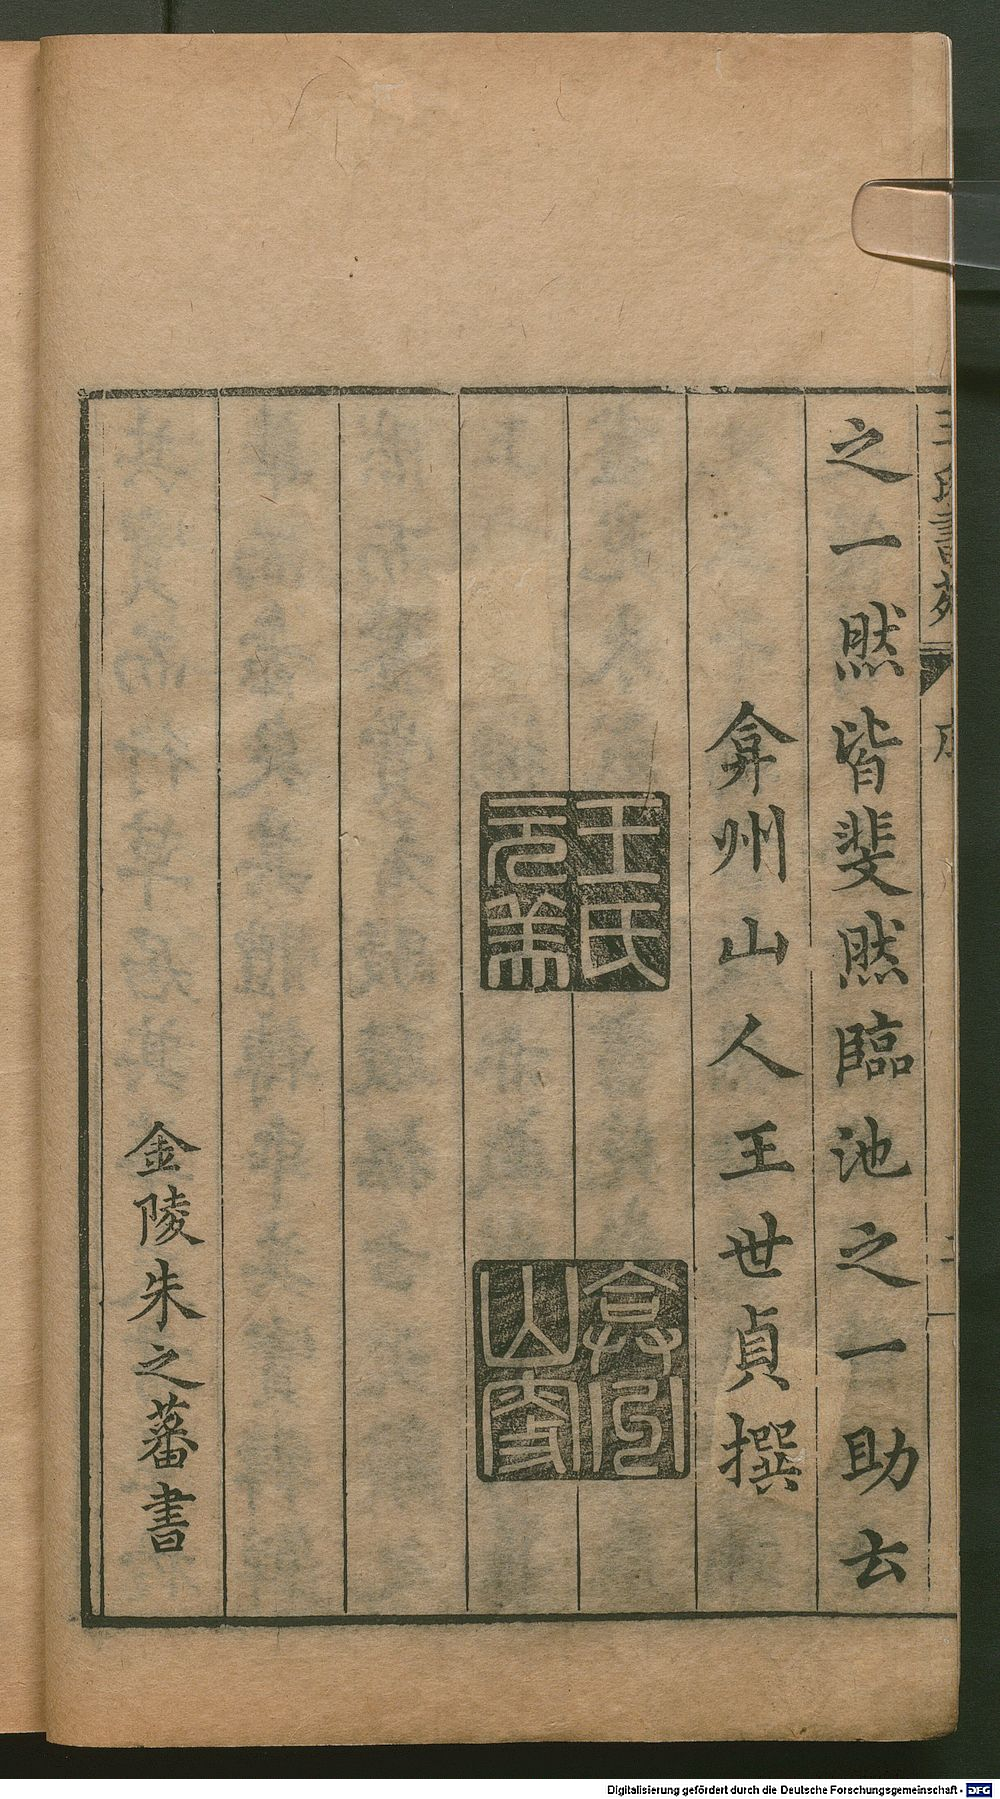 王氏書苑 序
之一然皆斐然臨池之一助云
弇州山人王世貞撰
王氏
元美
弇州
山人
金陵朱之蕃書
Digitalisierung gefördert durch die Deutsche Forschungsgemeinschaft - DFG